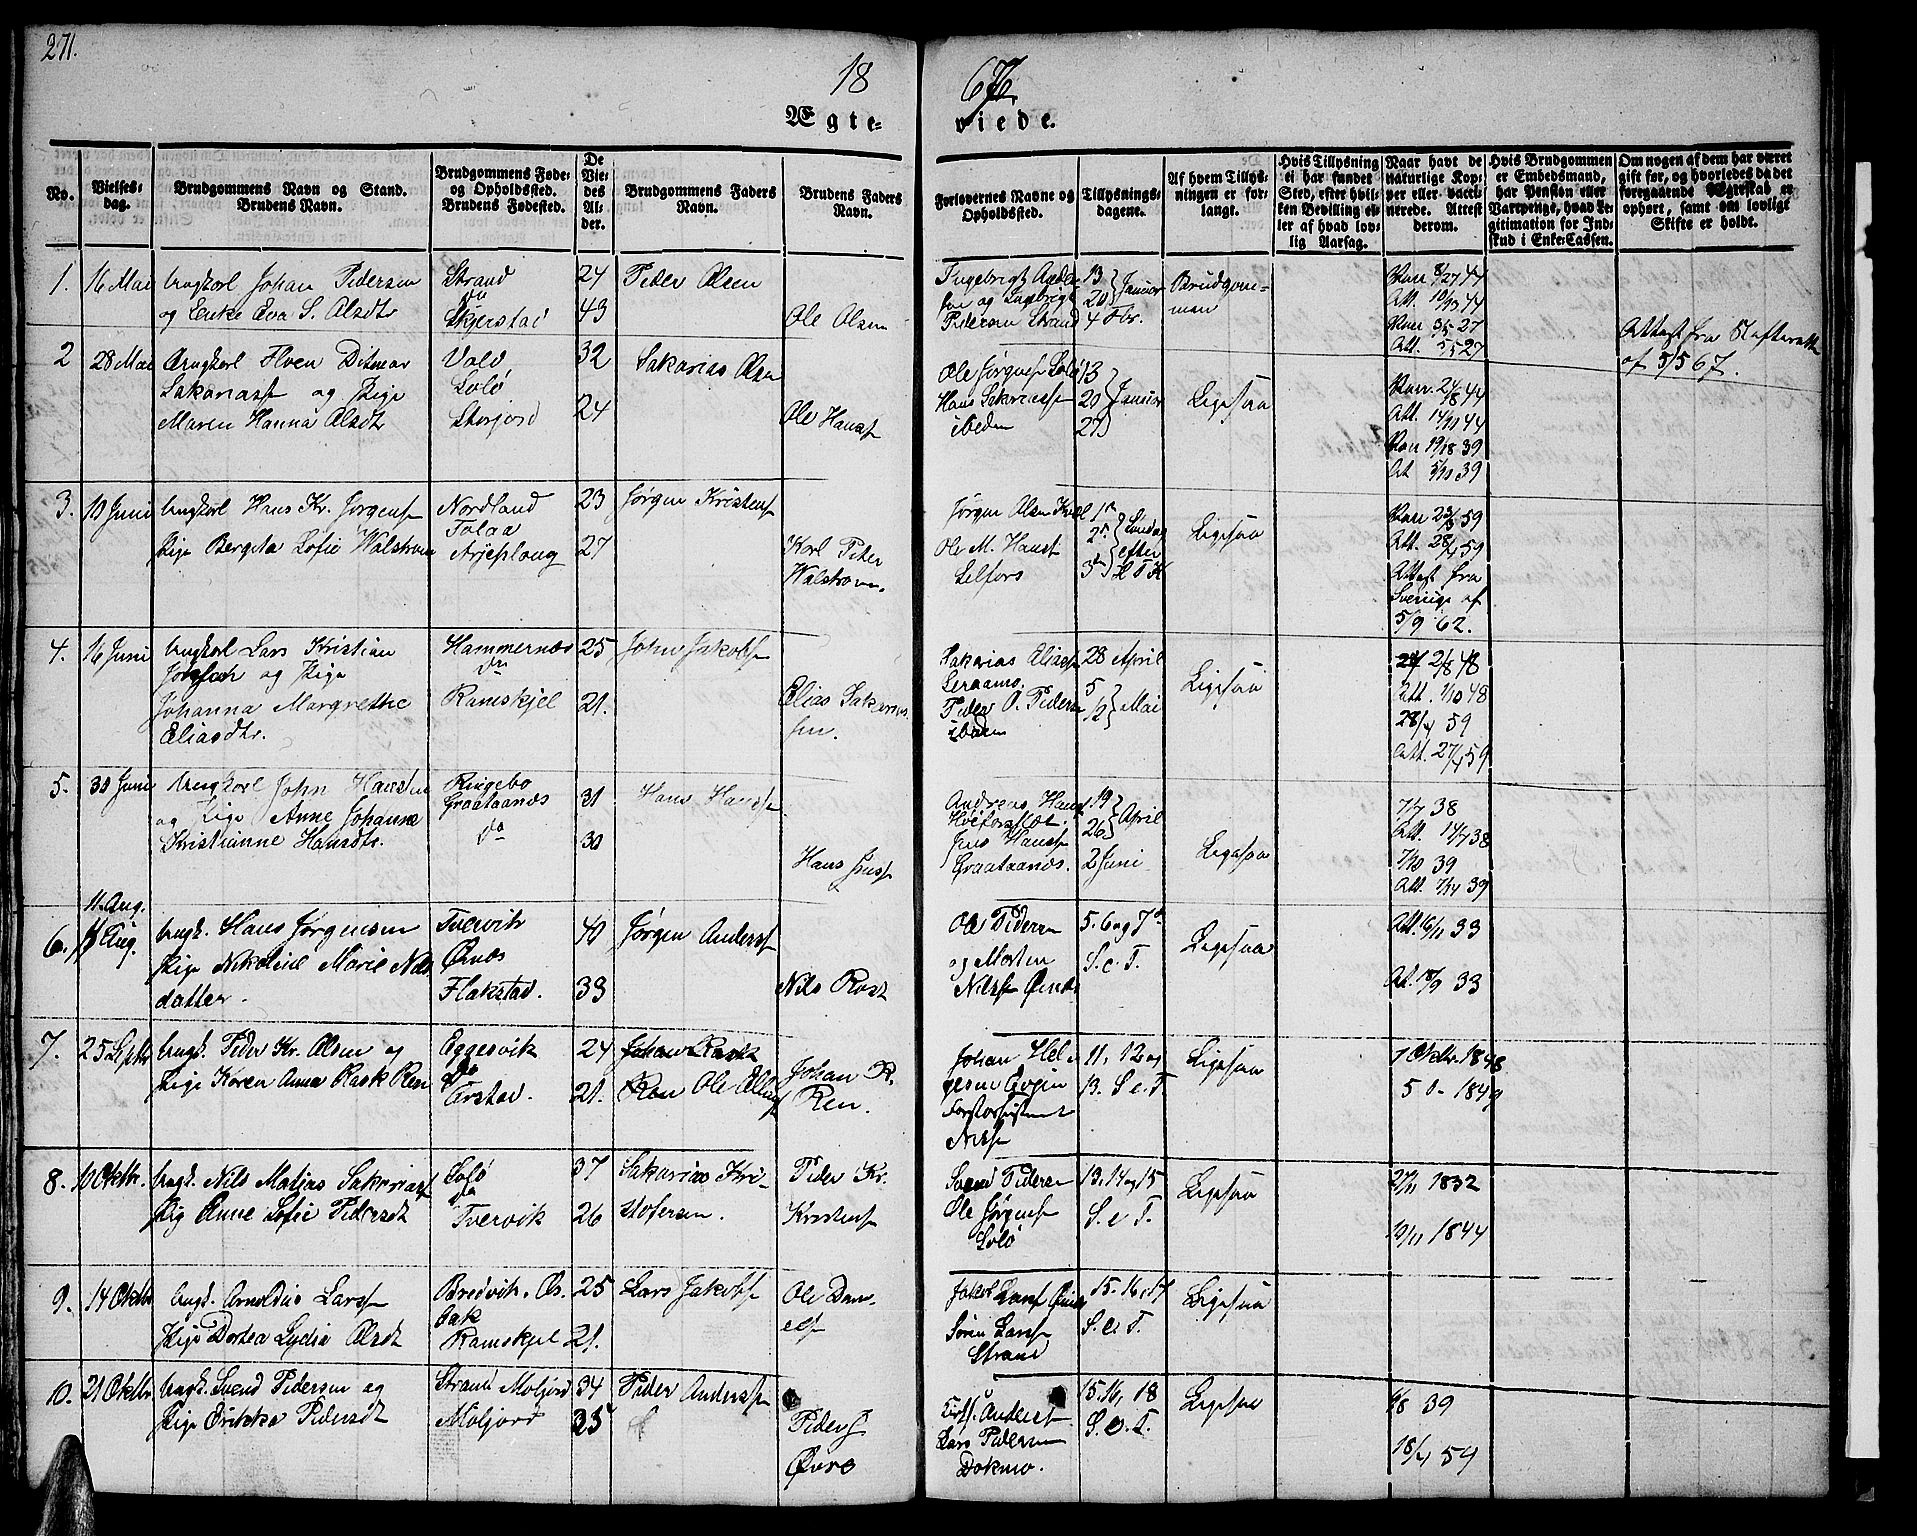 271.
18
67.
Ægte-
viede.
No.
Vielses-
dag.
Brudgommens Navn og Stand.
Brudens Navn.
Brudgommens Føde-
og Opholdssted.
Brudens Fødested.
De
Vie-
des
Al-
der.
Brudgommens Faders
Navn.
Brudens Faders
Navn.
Forlovernes Navne og
Opholdssted.
Tillysnings-
dagene.
Af hvem Tillys-
ningen er for-
langt.
Hvis Tillysning
ei har fundet
Sted, efter hvil-
ken Bevilling el-
ler af hvad lov-
lig Aarsag.
Naar havt de
naturlige Kop-
per eller vacci-
nerede. Attest
derom.
Hvis Brudgommen
er Embedsmand,
har Pension eller
Vartpenge, hvad Le-
gitimation for Ind-
skud i Enke-Cassen.
Om nogen af dem har været
gift før, og hvorledes da det
foregaaende Ægteskab er
ophørt, samt om lovligt
Skifte er holdt.
1. 16 Mai Ungkarl Johan Pedersen
og Enke Eva S. Olsdtr
Strand
do
Skjerstad
24
43
Peder Olsen
Ole Olsen
Ingebrigt
og Ingebrigt
Pedersen Strand
13
20 Januar
4 Fbr.
Brudgom-
men
Vacc 8/27 44
Att. 10/10 44
Vacc 3/5 27
Att. 5/5 27
Attest fra Skifteretten
af 3/5 67.
2 28 Mai Ungkarl Ditmar
Sakariass og Pige
Maren Hanna Olsdtr
Vold
Solø
Storjord
32
24
Sakarias Olsen
Ole Hanss
Ole Jørgens Solø
Hans Sakariass
ibiden
13
20 Januar
27
Ligesaa
Vacc. 24/8 44
Att. 14/10 44
Vacc 19/8 39
Att 5/10 39
3. 10 Juni Ungkarl Hans Kr. Jørgens
Pige Bergeta Sofie Walstrøm
Nordland
Arjeplaug
23
27
Jørgen Kristens
Karl Peter
Walstrøm.
Jørgen Olsen
Ole M. Hanss
Selfors
1ste
2den Søndag
3die efter H T K
Ligesaa
Vacc 23/5 59
Att. 28/4 59
Attest fra
Sverige af
5/9 62.
4. 16 Juni Ungkarl Lars Kristian
og Pige
Johanna Margrethe
Eliasdtr.
Hammernæs
do
Ramskjel
25
21.
John Jakobs
Elias Sakarias-
sen.
Sakarias Eliass
Peder O. Peders
ibiden
28 April
5
12 Mai
Ligesaa
2/8 48
Att. 1/10 48
28/4 59
Att. 27/4 59
5. 30 Juni Ungkarl John Hansen
og Pige Anne Johanne
Kristianne Hansdtr.
Ringebo
Graataanæs
do
31
30
Hans Hanss
Hans Jens
Andreas Hanss
Jens Hanss
Graataanæs
19
26 April
2 Juni
Ligesaa
7/7 38
Att. 14/7 38
7/10 39
Att. 7/14 39
11. Aug.
6. 11 Aug. Ungk. Hans Jørgensen
Pige Nikoline Marie Nils
datter.
Tvervik
Øinæs
Flakstad.
40
33
Jørgen Anderss
Nils Rost
Ole Pedersen
og Morten
Nilss Øinæs
5. 6 og 7de
S. e. T.
Ligesaa
Att. 16/11 33
At. 18/9 33
7. 25 Septbr Ungk. Peder Kr. Olsen og
Pige Karen Anna Rask Ren
Eggesvik
do
Ørstad.
24
21.
Ole
Johan R.
Ren.
Johan Hel-
gesen
Nilss
11, 12 og
13. S e T.
Ligesaa
1 Oktbr. 1848
5 O- 1849
8. 10 Oktbr. Ungk. Nils Matias Sakariass
Pig Anne Sofie Pedersdt
Solø
do
Tvervik
37
26
Sakarias Kri-
stofersen.
Peder Kr.
Kristens
Svend Pedersen
Ole Jørgens
Solø
13. 14 og 15
S. e T.
Ligesaa
27/11 1832
19/11 1844
9. 14 Oktbr Ungk. Arnoldus Larss
Pige Dortea Lydia Olsdt
Bredvik. Øs.
bak
Ramskjel
25
21.
Lars Jakobs
Ole Dani-
els
Jakob Larss Øinæs
Søren Larss
Strand
15. 16. 17
S. e. T.
Ligesaa
10. 21 Oktbr Ungk. Svend Pedersen og
Pige Erikka Pedersdt
Strand Moljord
Moljord
34
35
Peder Anderss
Peder J
Øvre
Anders
Lars Pedersen
Dokmo.
15. 16, 18
S. e. T.
Ligesaa
6/8 39
18/4 54